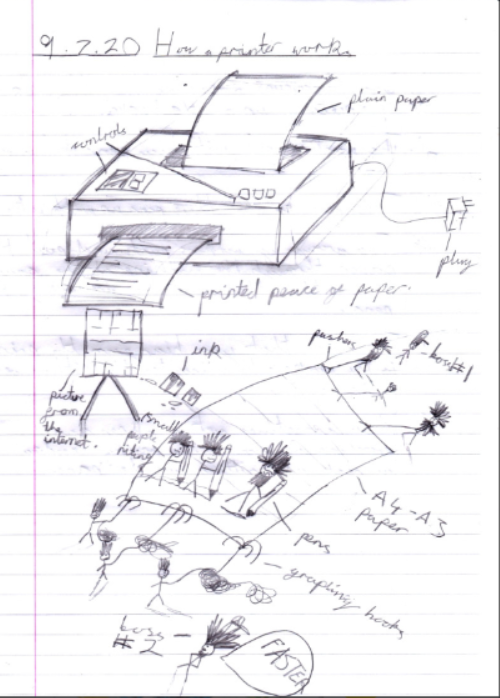 9.2.20 How a printer works
plain paper
controls
plug
printed peace of paper.
ink
pushers
boss #1
picture
from
the
internet.
small
people
riding
A4-A3
paper
pens
grapling hooks
boss
#2
FASTER